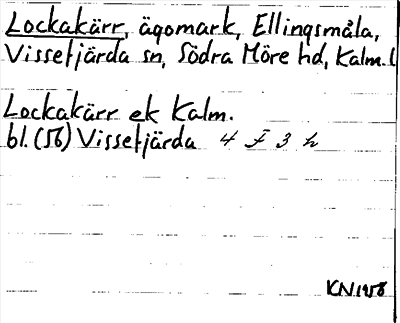 Lockakärr, ägomark, Ellingsmåla,
Vissefjärda sn, Södra Möre hd, Kalm. l
Lockakärr ek Kalm.
bl. (56) Vissefjärda 4 F 3 h
KN 1958